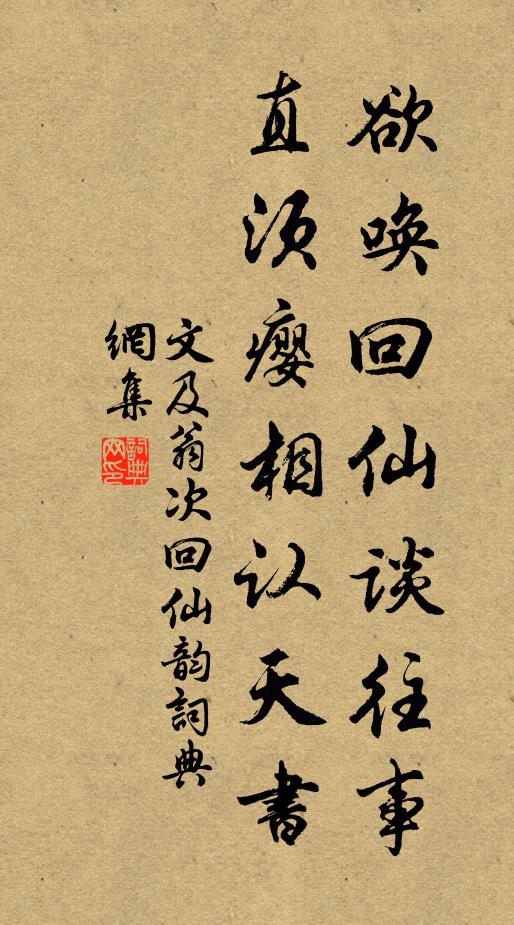 欲唤回仙谈往事
直须瘿相认天書
文及翁次回仙韵詞典
網集
詞典网印